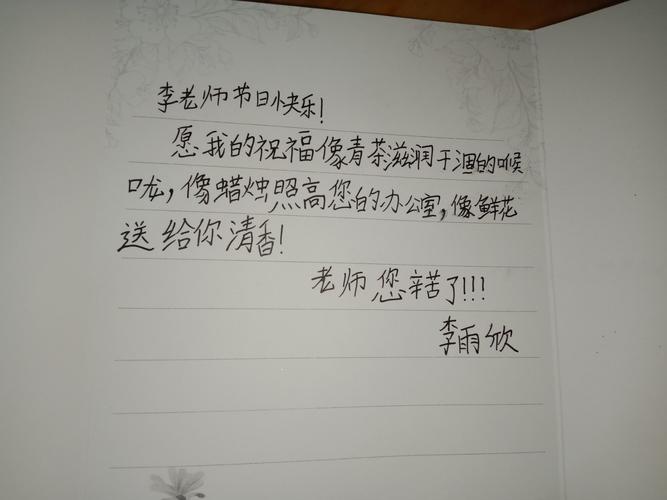 李老师节日快乐!
愿我的祝福像青茶滋润干涸的喉
咙,像蜡烛照高您的办公室,像鲜花
送给你清香!
老师您辛苦了!!!
李雨欣